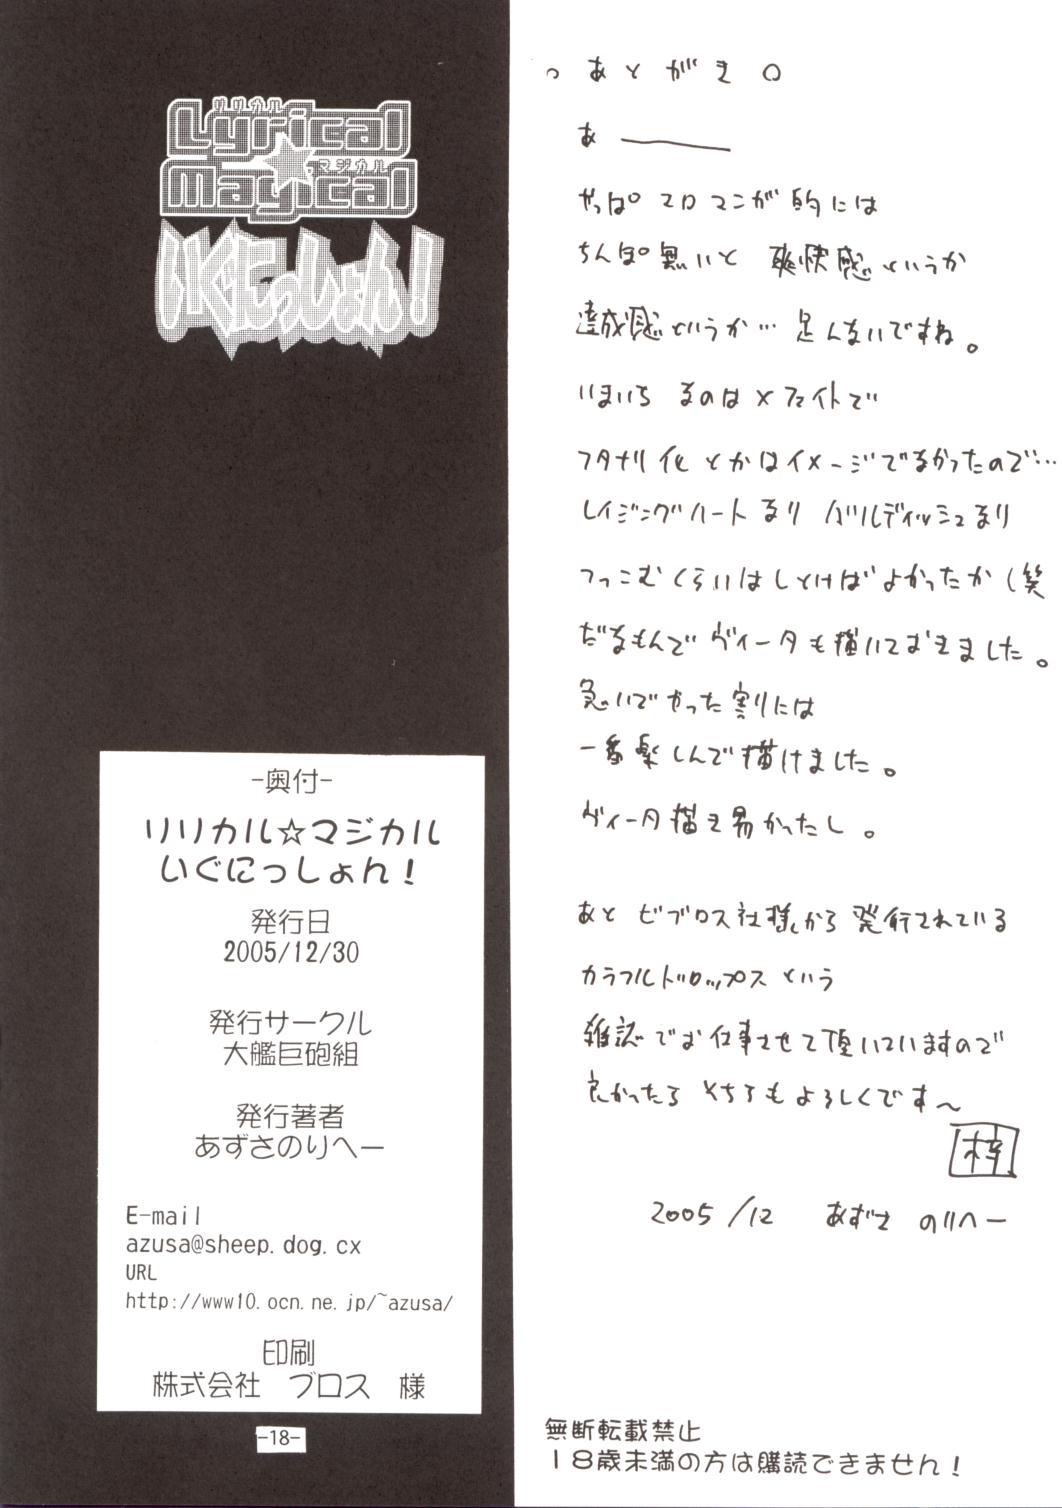 リリカル
Lyrical
マジカル
Magical
いぐにっしょん!
-奥付-
リリカル☆マジカル
いぐにっしょん!
発行日
2005/12/30
発行サークル
大艦巨砲組
発行著者
あずさのりへー
E-mail
azusa@sheep.dog.cx
URL
http://www10.ocn.ne.jp/~azusa/
印刷
株式会社 ブロス 様
-18-
あとがき。
あ———
やっぱ エロ マンガ 的には
ちんぽ無いと 爽快感というか
達成感というか… 足んないですね。
いまいち なのは×フェイトで
フタナリ化とかはイメージでなかったので…
レイジングハートなり バルディッシュなり
つっこむくらいはしとけばよかったか(笑
だなもんで ヴィータも描いておきました。
急いでやった割りには
一番楽しんで描けました。
ヴィータ描き易かったし。
あと ビブロス社様から発行されている
カラフルドロップス という
雑誌でお仕事させて頂いていますので
良かったら そちらもよろしくです〜
梓
2005/12 あずさ のりへー
無断転載禁止
18歳未満の方は購読できません!